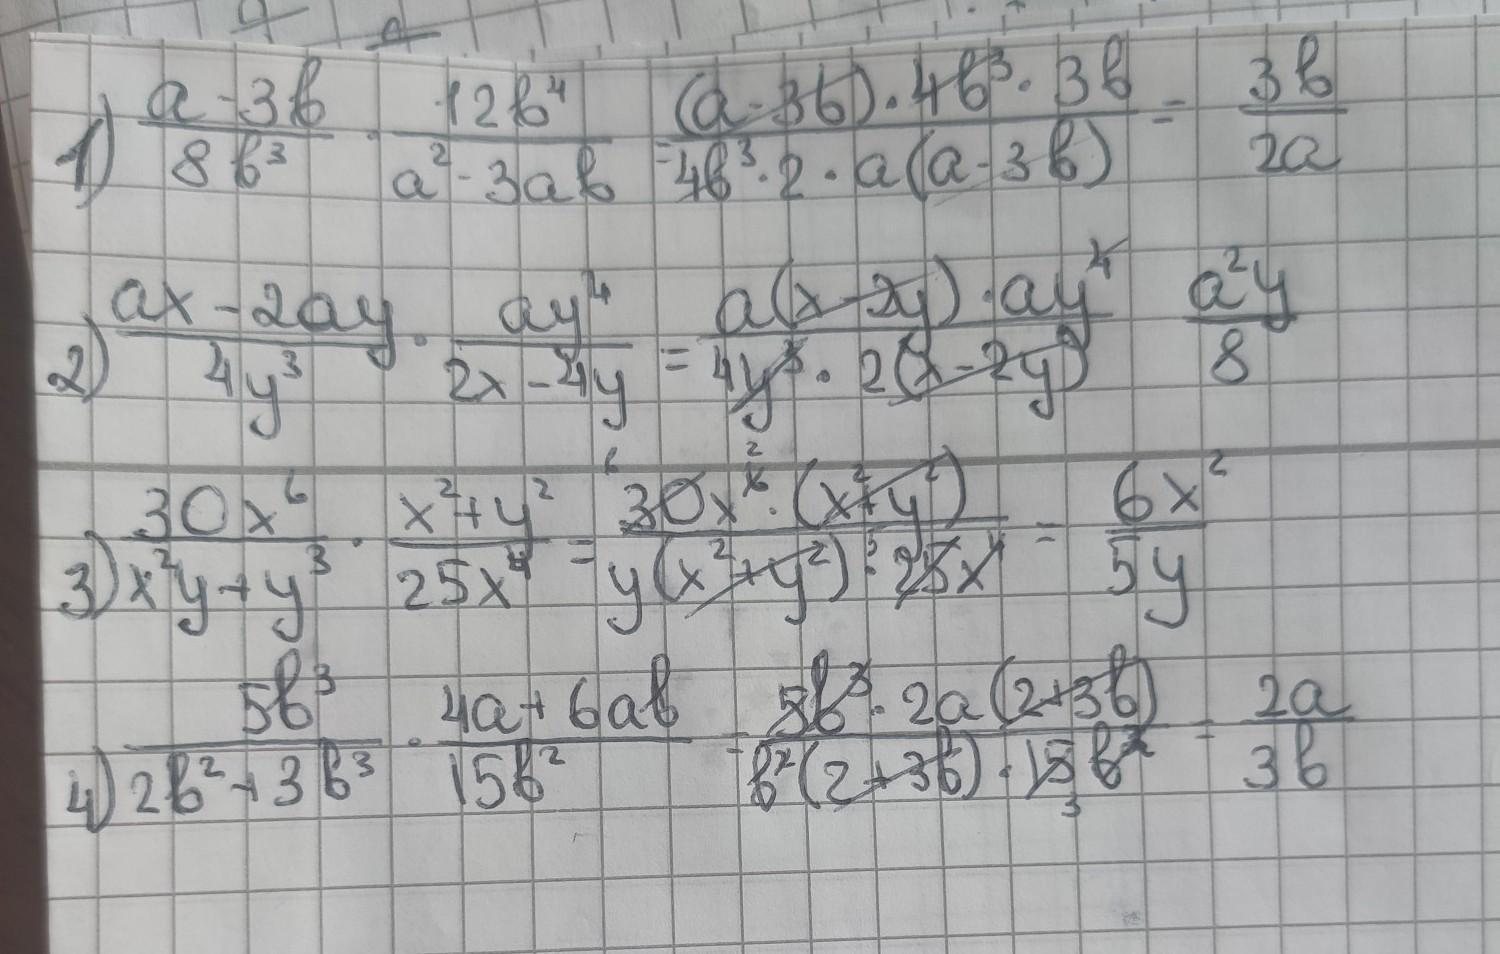 1) (a - 3b)/(8b³) · (12b⁴)/(a² - 3ab) = ((a - 3b) · 4b³ · 3b)/(4b³ · 2 · a(a - 3b)) = 3b/2a
2) (ax - 2ay)/(4y³) · (ay⁴)/(2x - 4y) = (a(x - 2y) · ay⁴)/(4y³ · 2(x - 2y)) a²y/8
3) (30x⁶)/(x²y + y³) · (x² + y²)/(25x⁴) = (30x⁶ · (x² + y²))/(y(x² + y²) · 25x⁴) = 6x²/5y
4) (5b³)/(2b² + 3b³) · (4a + 6ab)/(15b²) = (5b³ · 2a(2 + 3b))/(b²(2 + 3b) · 15b²) = 2a/3b